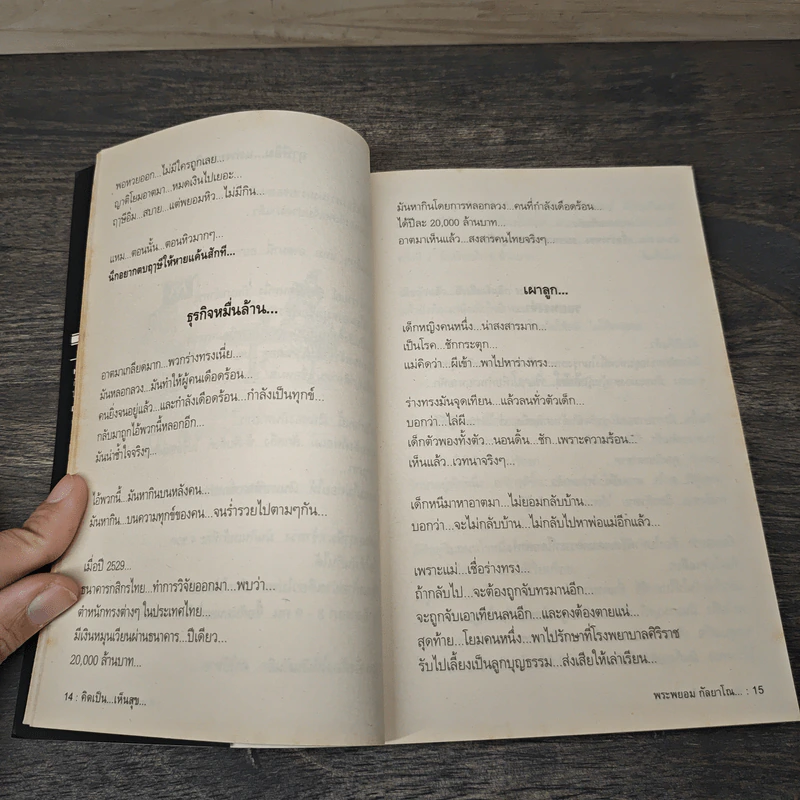 พอหวยออก...ไม่มีใครถูกเลย...
ญาติโยมอาตมา...หมดเงินไปเยอะ...
ฤๅษีอิ่ม...สบาย...แต่พยอมหิว...ไม่มีกิน...
แหม...ตอนนั้น...ตอนหิวมากๆ...
นึกอยากตบฤๅษีให้หายแค้นสักที...
ธุรกิจหมื่นล้าน...
อาตมาเกลียดมาก...พวกร่างทรงเนี่ย...
มันหลอกลวง...มันทำให้ผู้คนเดือดร้อน...
คนยิ่งจนอยู่แล้ว...และกำลังเดือดร้อน...กำลังเป็นทุกข์...
กลับมาถูกไอ้พวกนี้หลอกอีก...
มันน่าช้ำใจจริงๆ...
ไอ้พวกนี้...มันหากินบนหลังคน...
มันหากิน...บนความทุกข์ของคน...จนร่ำรวยไปตามๆกัน...
เมื่อปี 2529...
ธนาคารกสิกรไทย...ทำการวิจัยออกมา...พบว่า...
ตำหนักทรงต่างๆ ในประเทศไทย...
มีเงินหมุนเวียนผ่านธนาคาร...ปีเดียว...
20,000 ล้านบาท...
14 : คิดเป็น...เห็นสุข...
มันหากินโดยการหลอกลวง...คนที่กำลังเดือดร้อน...
ได้ปีละ 20,000 ล้านบาท...
อาตมาเห็นแล้ว...สงสารคนไทยจริงๆ...
เผาลูก...
เด็กหญิงคนหนึ่ง...น่าสงสารมาก...
เป็นโรค...ชักกระตุก...
แม่คิดว่า...ผีเข้า...พาไปหาร่างทรง...
ร่างทรงมันจุดเทียน...แล้วลนทั่วตัวเด็ก...
บอกว่า...ไล่ผี...
เด็กตัวพองทั้งตัว...นอนดิ้น...ชัก...เพราะความร้อน...
เห็นแล้ว...เวทนาจริงๆ...
เด็กหนีมาหาอาตมา...ไม่ยอมกลับบ้าน...
บอกว่า...จะไม่กลับบ้าน...ไม่กลับไปหาพ่อแม่อีกแล้ว...
เพราะแม่...เชื่อร่างทรง...
ถ้ากลับไป...จะต้องถูกจับทรมานอีก...
จะถูกจับเอาเทียนลนอีก...และคงต้องตายแน่...
สุดท้าย...โยมคนหนึ่ง...พาไปรักษาที่โรงพยาบาลศิริราช
รับไปเลี้ยงเป็นลูกบุญธรรม...ส่งเสียให้เล่าเรียน...
พระพยอม กัลยาโณ... : 15